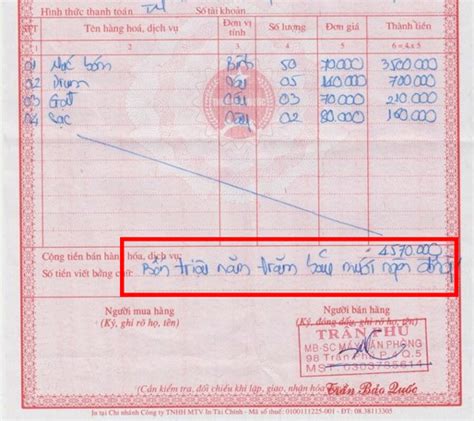 Hình thức thanh toán TM Số tài khoản
STT Tên hàng hoá, dịch vụ Đơn vị tính Số lượng Đơn giá Thành tiền
1 2 3 4 5 6=4x5
01 Mực bơm Bình 50 70000 3500000
02 Drum Cái 05 140000 700000
03 Gạt Cái 03 70000 210000
04 Sạc Cây 02 80000 160000
Cộng tiền bán hàng hóa, dịch vụ: 4570.000
Số tiền viết bằng chữ: Bốn triệu năm trăm bảy mươi ngàn đồng
Người mua hàng Người bán hàng
(Ký, ghi rõ họ, tên) (Ký, đóng dấu, ghi rõ họ, tên)
TRẦN PHÚ
MB-SC MÁY VĂN PHÒNG
98 Trần Phú P Q.5
MST: 0303765614
(Cần kiểm tra, đối chiếu khi lập, giao, nhận hóa
Trần Bảo Quốc
In tại Chi nhánh Công ty TNHH MTV In Tài Chính - Mã số thuế: 0100111225-001 - ĐT: 08.38113305